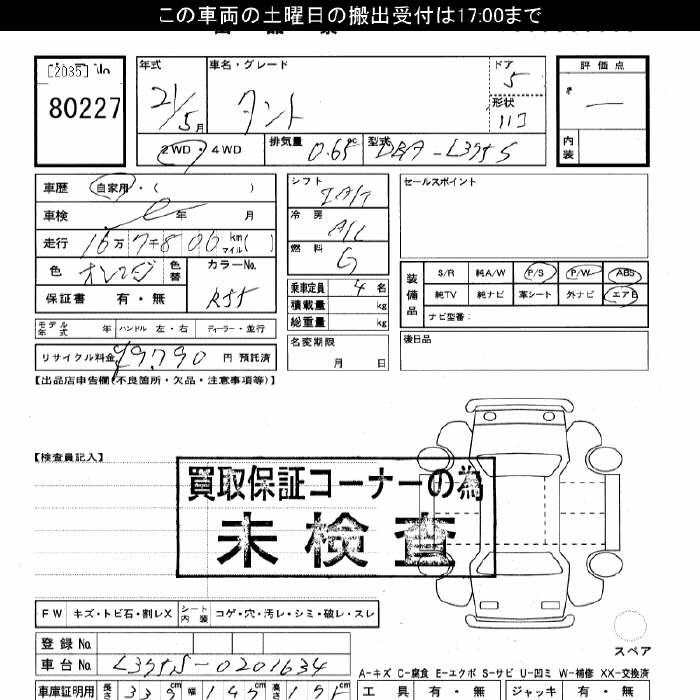 この車両の土曜日の搬出受付は17:00まで
[2035] No
80227
年式 車名・グレード ドア 評価点
21/5月 タント 5 ー
形状
排気量 型式 内装
2WD・4WD 0.65 cc DBA-L375S
車歴 自家用・( ) シフト セールスポイント
車検 年 月 冷房 A/C
走行 16万7千806km マイル( ) 燃料 G
色 オレンジ 色替 カラーNo. R55
乗車定員 4名
装備品 S/R 純A/W P/S P/W ABS
保証書 有・無 積載量 kg 純TV 純ナビ 革シート 外ナビ エアB
総重量 kg ナビ型番:
モデル年式 年 ハンドル 左・右 ディーラー・並行
名変期限 月 日 後日品
リサイクル料金 ¥9,790 円 預託済
【出品店申告欄(不良箇所・欠品・注意事項等)】
【検査員記入】
買取保証コーナーの為
未検査
FW キズ・トビ石・割レX シート内装 コゲ・穴・汚レ・シミ・破レ・スレ
登録No.
スペア
車台No. L375S-0201634
A-キズ C-腐食 E-エクボ S-サビ U-凹ミ W-補修 XX-交換済
車庫証明用 長さ 339cm 幅 147cm 高さ 175cm 工具 有・無 ジャッキ 有・無